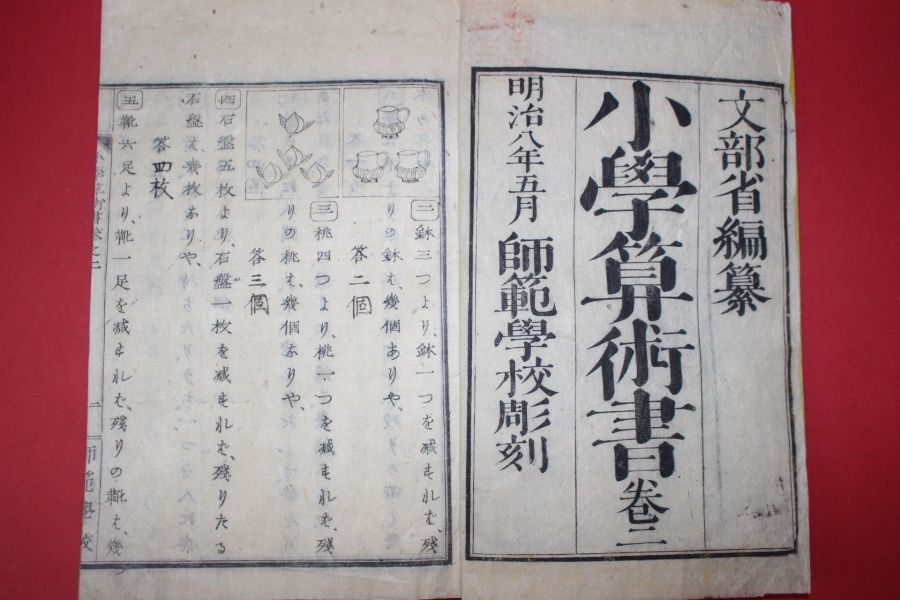 文部省編纂
小學算術書卷二
明治八年五月 師範學校彫刻
二 鉢三つより、鉢一つを減ずれば、殘
りの鉢は、幾個ありや、
答二個
三 桃四つより、桃一つを減ずれば、殘
りの桃は、幾個ありや、
答三個
四 石盤五枚より、石盤一枚を減ずれば、殘りたる
石盤は、幾枚ありや、
答四枚
五 靴六足より、靴一足を減ずれば、殘りの靴は、幾
師範學校